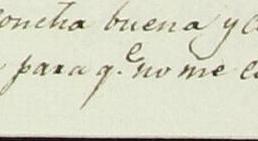 concha buena y c
para q.e no me c